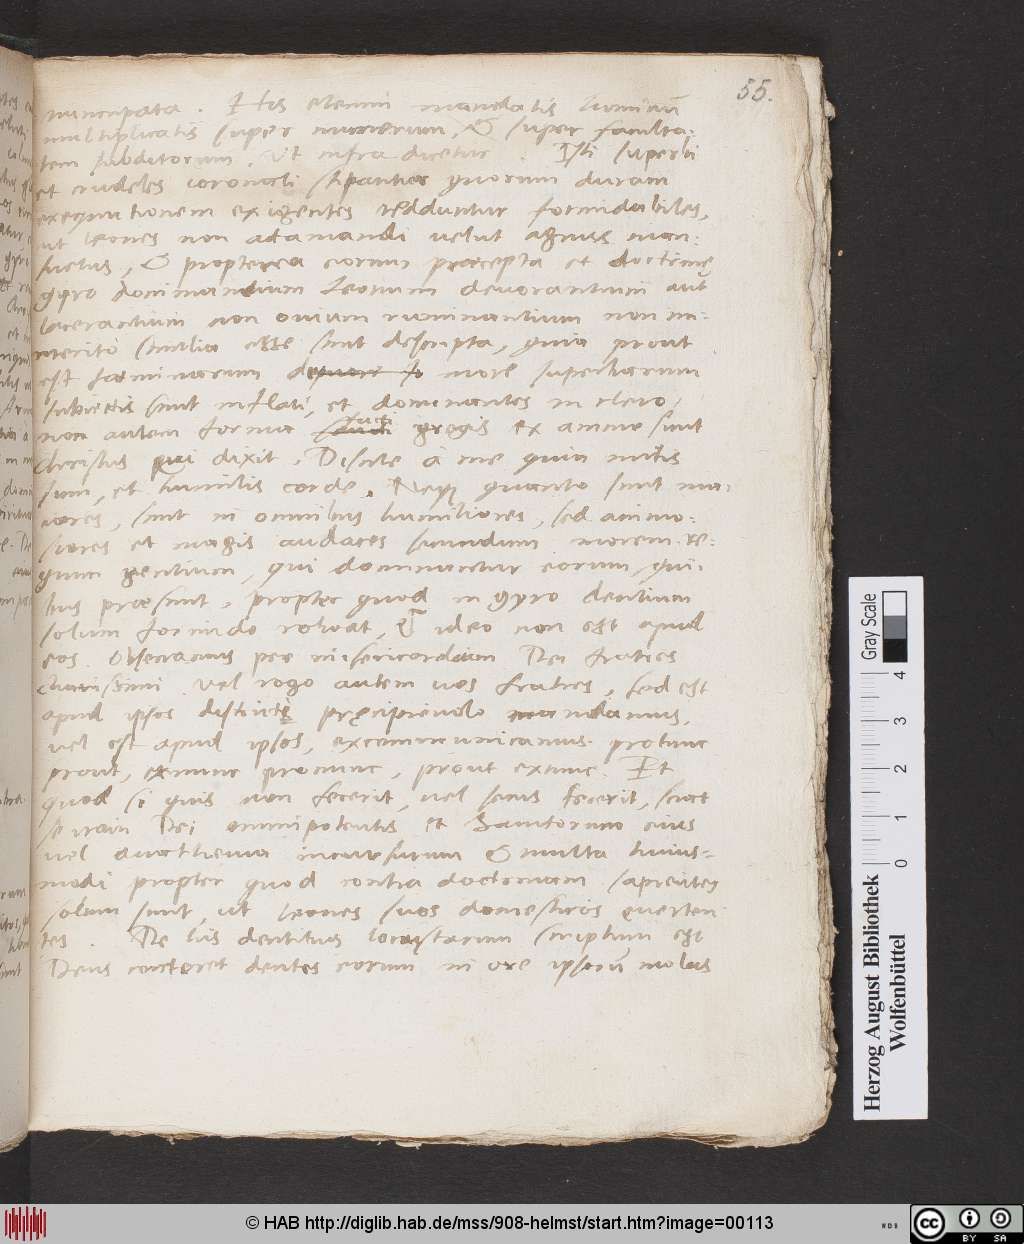 55.
nuncupata. His etenim mandatis hominū
multiplicatis super numerum, & super faculta-
tem subditorum, ut infra dicetur. Isti superbi
et crudeles coronati quorum duram
exequutionem exigentes redduntur formidabiles,
ut leones non adamandi velut agnus man-
suetus, & propterea eorum praecepta et doctrinę
gyro dominantium leonum devorantium aut
lacerantium non ovium ruminantium non im-
merito similia esse sunt descripta, quia prout
est faeminarum more superbarum
subiectis sunt inflati, et dominantes in clero,
non autem forma facti gregis ex animo sunt
Christus qui dixit. Discite à me quia mitis
sum, et humilis corde. Neque quanto sunt ma-
iores, sunt in omnibus humiliores, sed animo-
siores et magis audaces secundum morem re-
gum gentium, qui dominantur eorum, qui-
bus praesunt, propter quod in gyro dentium
solum formido rohvat, & ideo non est apud
eos. Obsecramus per misericordiam Dei fratres
charissimi. vel rogo autem vos fratres, sed est
apud ipsos districtè pręcipiendo mandamus,
vel est apud ipsos, excommunicamus protunc
prout, exnunc pronunc, prout extunc. Et
quod si quis non fecerit, vel secus fecerit, sciat
se iram Dei omnipotentis et Sanctorum eius
vel anathema incursurum & multa huius-
modi propter quod contra doctrinam sapientes
solum sunt, ut leones suos domesticos everten
tes. De his dentibus locustarum scriptum est
Deus conteret dentes eorum in ore ipsorū molas
Gray Scale
4
3
2
1
0
Herzog August Bibliothek
Wolfenbüttel
© HAB http://diglib.hab.de/mss/908-helmst/start.htm?image=00113
WDB
cc
BY SA